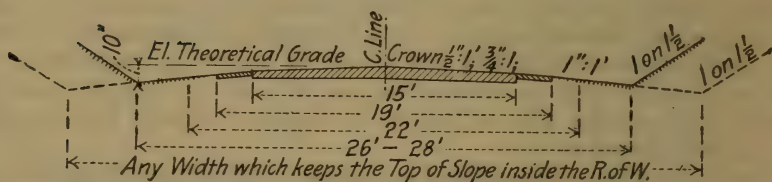 10"
El. Theoretical Grade
C. Line
Crown ½":1'; ¾":1;
1":1'
1 on 1½
1 on 1½
15'
19'
22'
26' - 28'
Any Width which keeps the Top of Slope inside the R. of W.